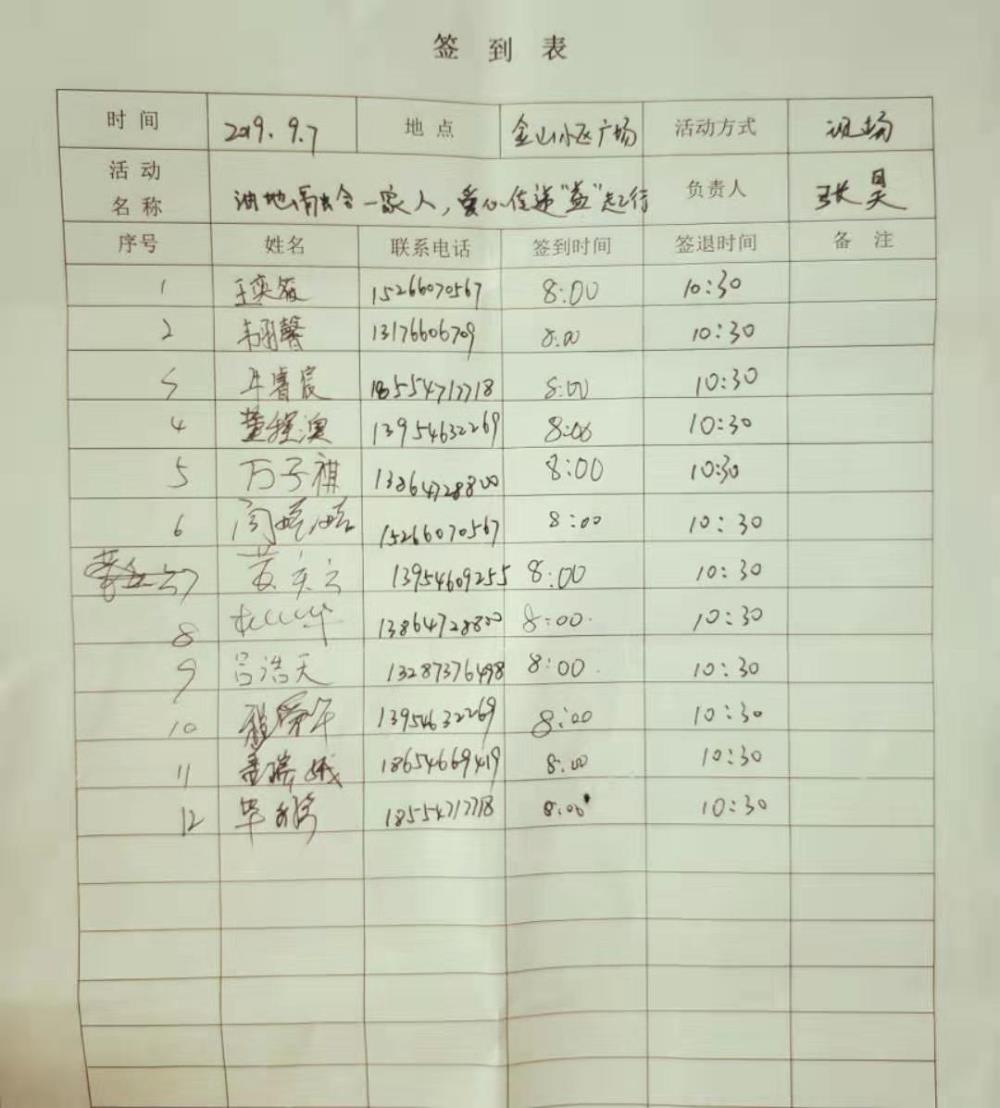 签到表
时间 2019.9.7 地点 金山小区广场 活动方式 现场
活动名称 油地融合一家人，爱心传递"益"起行 负责人 张昊
序号 姓名 联系电话 签到时间 签退时间 备注
1 15266070567 8:00 10:30
2 13176606709 8:00 10:30
3 牟睿宸 18554717718 8:00 10:30
4 董程澳 13954632269 8:00 10:30
5 万子祺 13864728800 8:00 10:30
6 15266070567 8:00 10:30
7 13954609255 8:00 10:30
8 13864728800 8:00 10:30
9 吕浩天 13287376498 8:00 10:30
10 13954632269 8:00 10:30
11 18654669419 8:00 10:30
12 18554717718 8:00 10:30